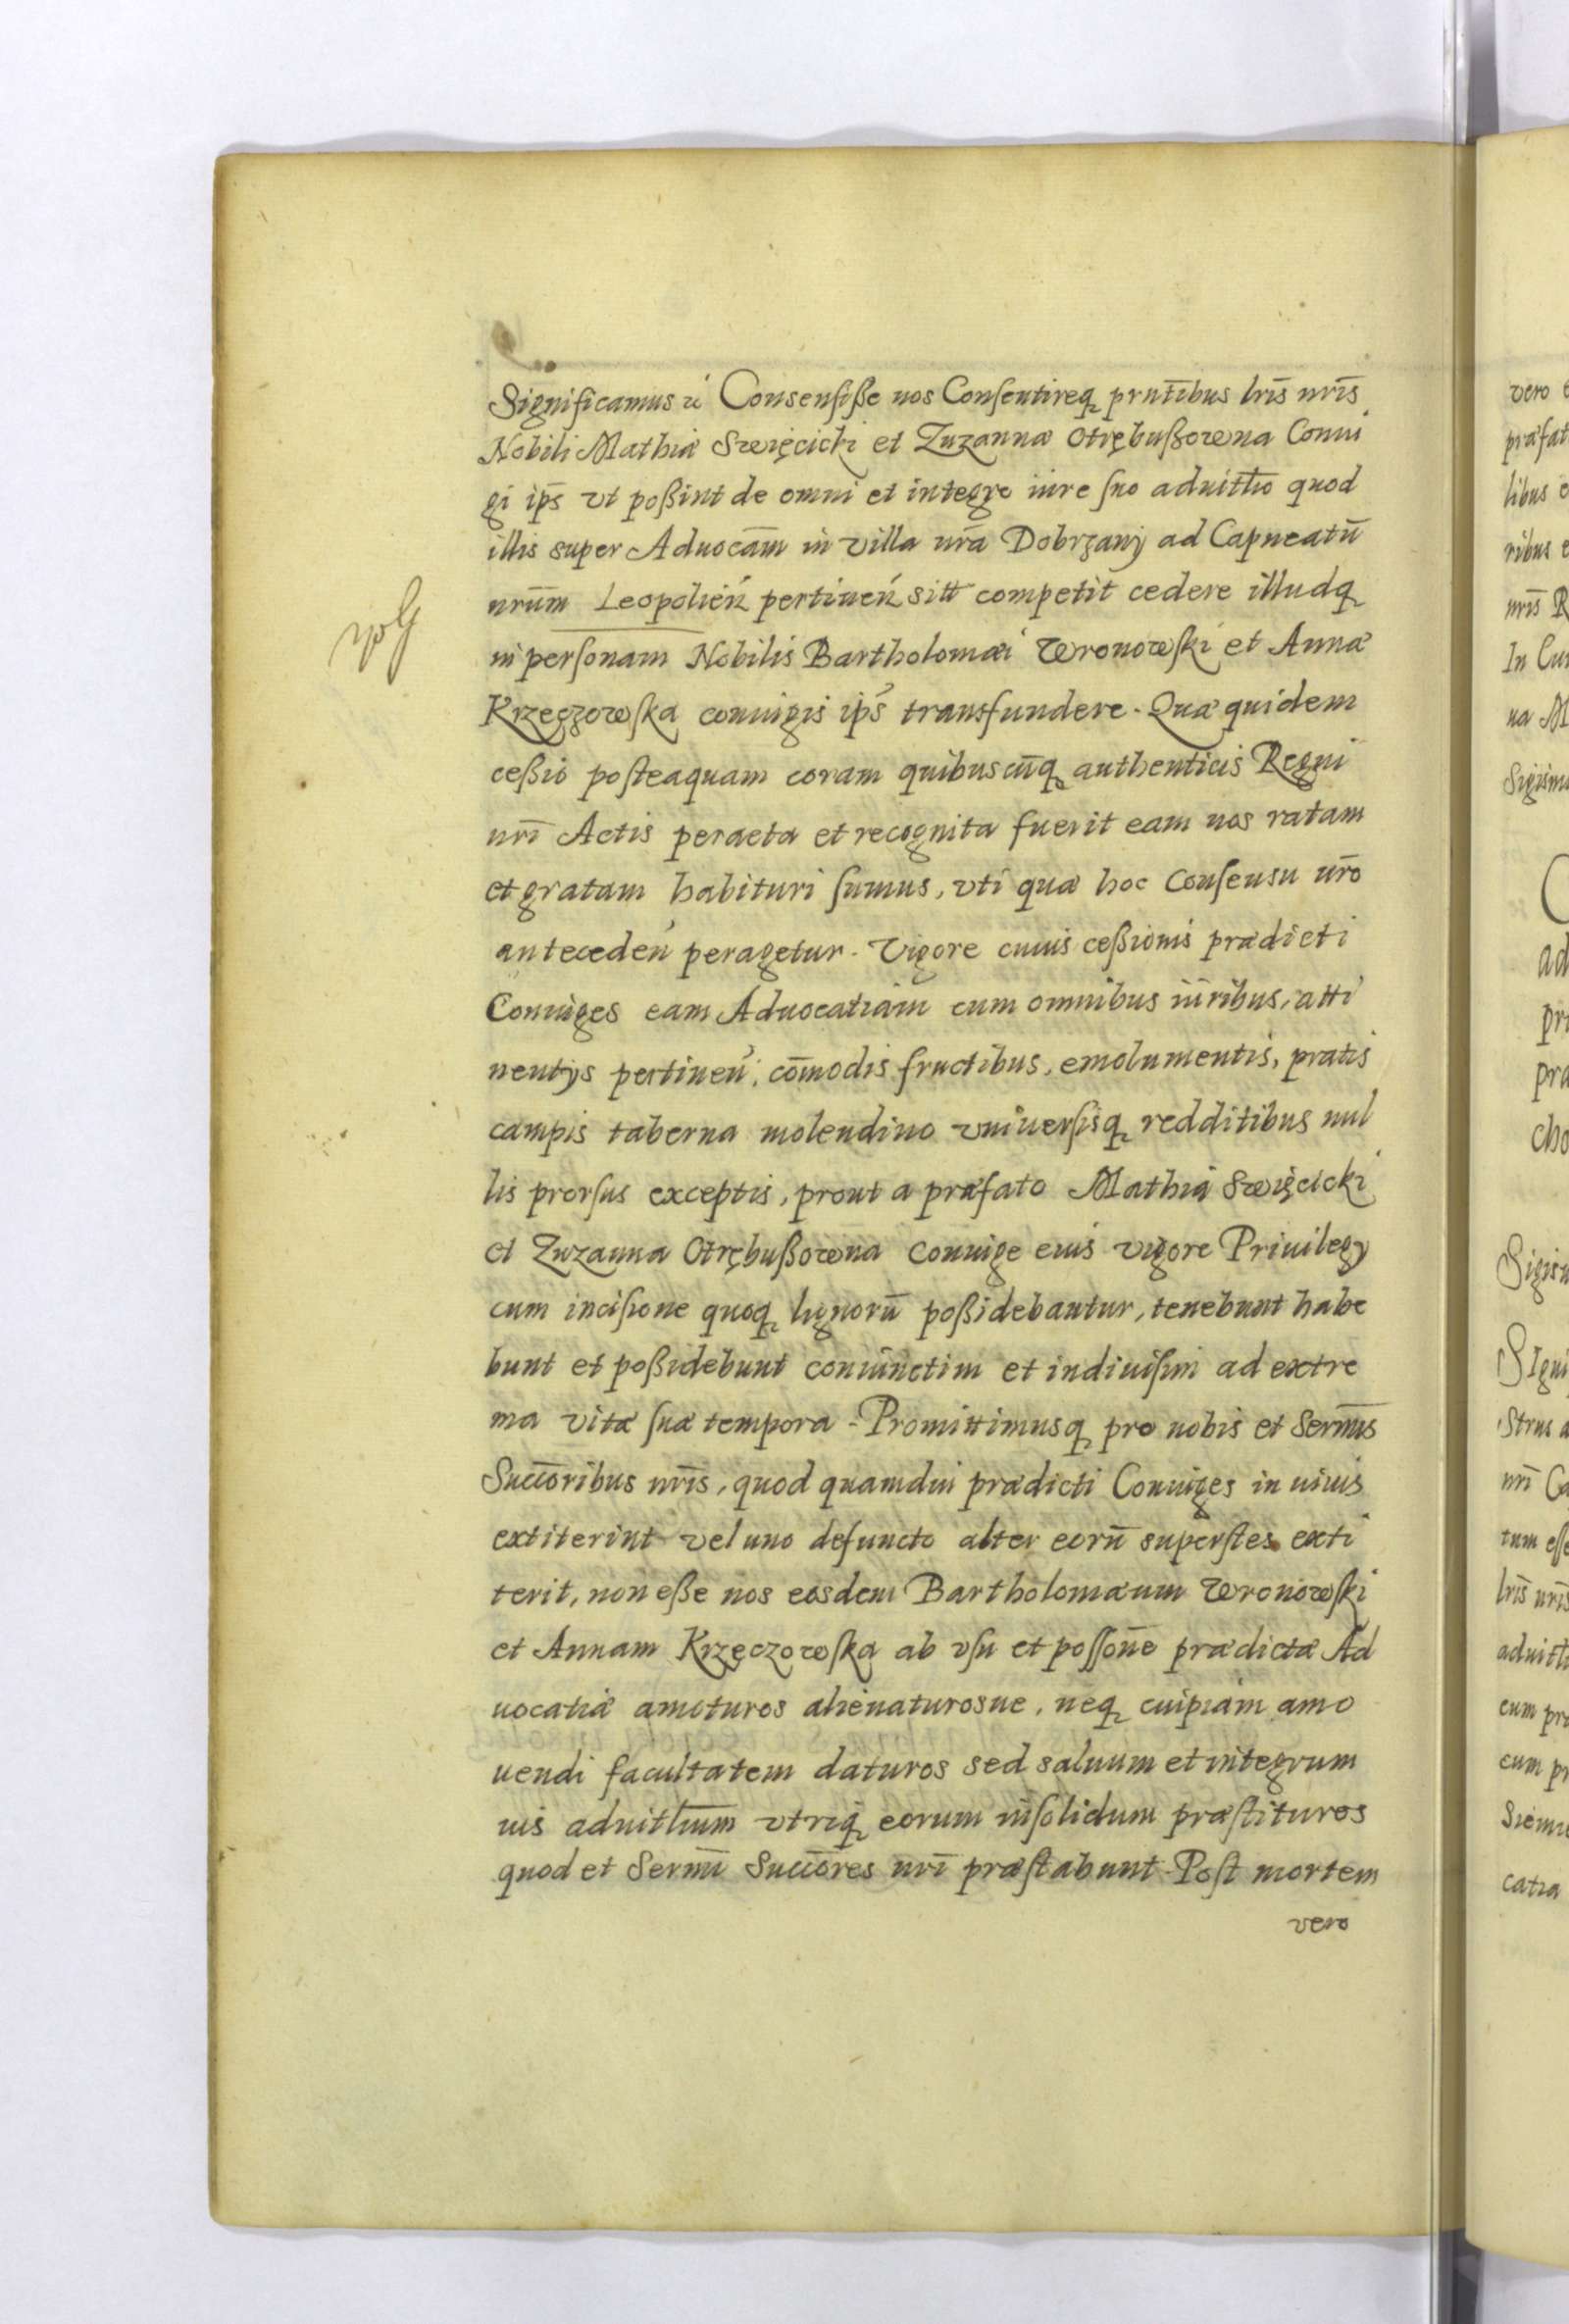 Significamus &c Consensisse nos Consentireq. prntibus lris nris
Nobili Mathiæ Swięcicki et Zuzannæ Otrębußowna Coniu
gi ips vt poßint de omni et integro iure suo aduitlio quod
illis super Aduocam in villa nra Dobrzany ad Capneatū
nrūm Leopolień pertineń sitt competit cedere illudq.
in personam Nobilis Bartholomæi Wronowski et Annæ
Krzeczowska coniugis ips transfundere. Quæ quidem
ceßio posteaquam coram quibuscūq. authenticis Regni
nri Actis peracta et recognita fuerit eam nos ratam
et gratam habituri sumus, vti quæ hoc Consensu nro
antecedeń peragetur. Vigore cuius ceßionis prædicti
Coniuges eam Aduocatiam cum omnibus iuribus, atti
nentijs pertineń, cōmodis fructibus, emolumentis, pratis
campis taberna molendino vniuersisq. redditibus nul
lis prorsus exceptis, prout a præfato Mathia Swięcicki
et Zuzanna Otrębußowna Coniuge eius vigore Priuilegy
cum incisione quoq. lignorū poßidebantur, tenebunt habe
bunt et poßidebunt coniunctim et indiuisim ad extre
ma vitæ suæ tempora. Promittimusq. pro nobis et Sermis
Succoribus nris, quod quamdiu prædicti Coniuges in uiuis
extiterint vel uno defuncto alter eorū superstes exti
terit, non eße nos eosdem Bartholomæum Wronowski
et Annam Krzęczowska ab vsu et possone prædictæ Ad
uocatiæ amoturos alienaturosue, neq. cuipiam amo
uendi facultatem daturos sed saluum et integrum
ius aduitlium vtriq. eorum insolidum præstituros
quod et Sermi Succores nri præstabunt. Post mortem
vero